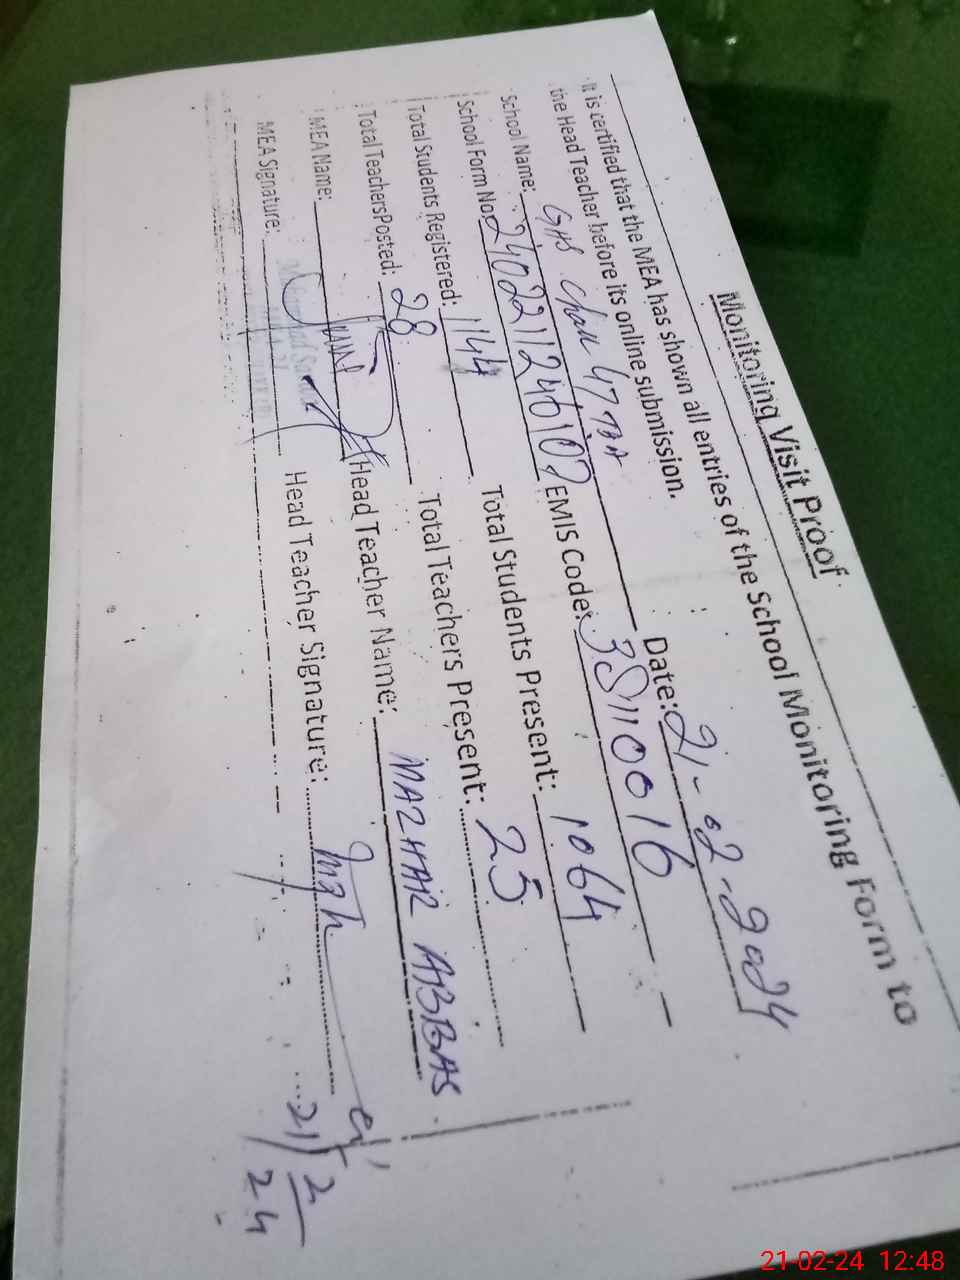 Monitoring Visit Proof
It is certified that the MEA has shown all entries of the School Monitoring Form to
the Head Teacher before its online submission.
School Name: GHS Chak 47 Date: 21-02-2024
School Form No: 2402211246107 EMIS Code: 38110016
Total Students Registered: 1144 Total Students Present: 1064
Total Teachers Posted: 28 Total Teachers Present: 25
MEA Name: Head Teacher Name: MAZHAR ABBAS
MEA Signature: Head Teacher Signature:
21/2
24
21-02-24 12:48